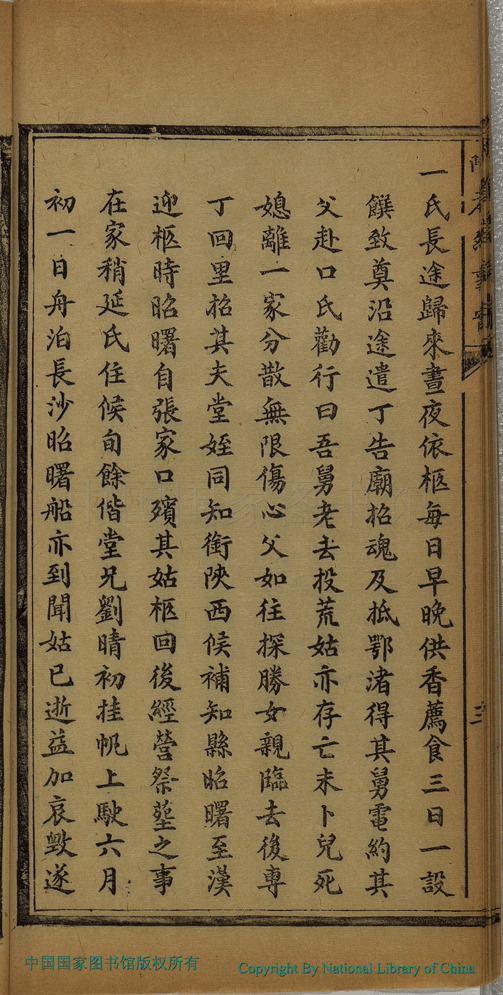 一氏長途歸來晝夜依柩每日早晚供香薦食三日一設
饌致奠沿途遣丁告廟招魂及抵鄂渚得其舅電約其
父赴口氏勸行曰吾舅老去投荒姑亦存亡未卜兒死
媳離一家分散無限傷心父如往探勝女親臨去後專
丁回里招其夫堂姪同知銜陝西候補知縣昭曙至漢
迎柩時昭曙自張家口殯其姑柩回後經營祭塟之事
在家稍延氏住候旬餘偕堂兄劉晴初挂帆上駛六月
初一日舟泊長沙昭曙船亦到聞姑已逝益加哀毀遂
三
中国国家图书馆版权所有
Copyright By National Library of China